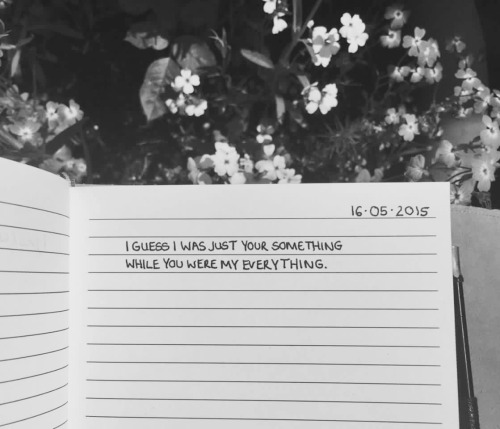 16·05·2015
I GUESS I WAS JUST YOUR SOMETHING
WHILE YOU WERE MY EVERYTHING.